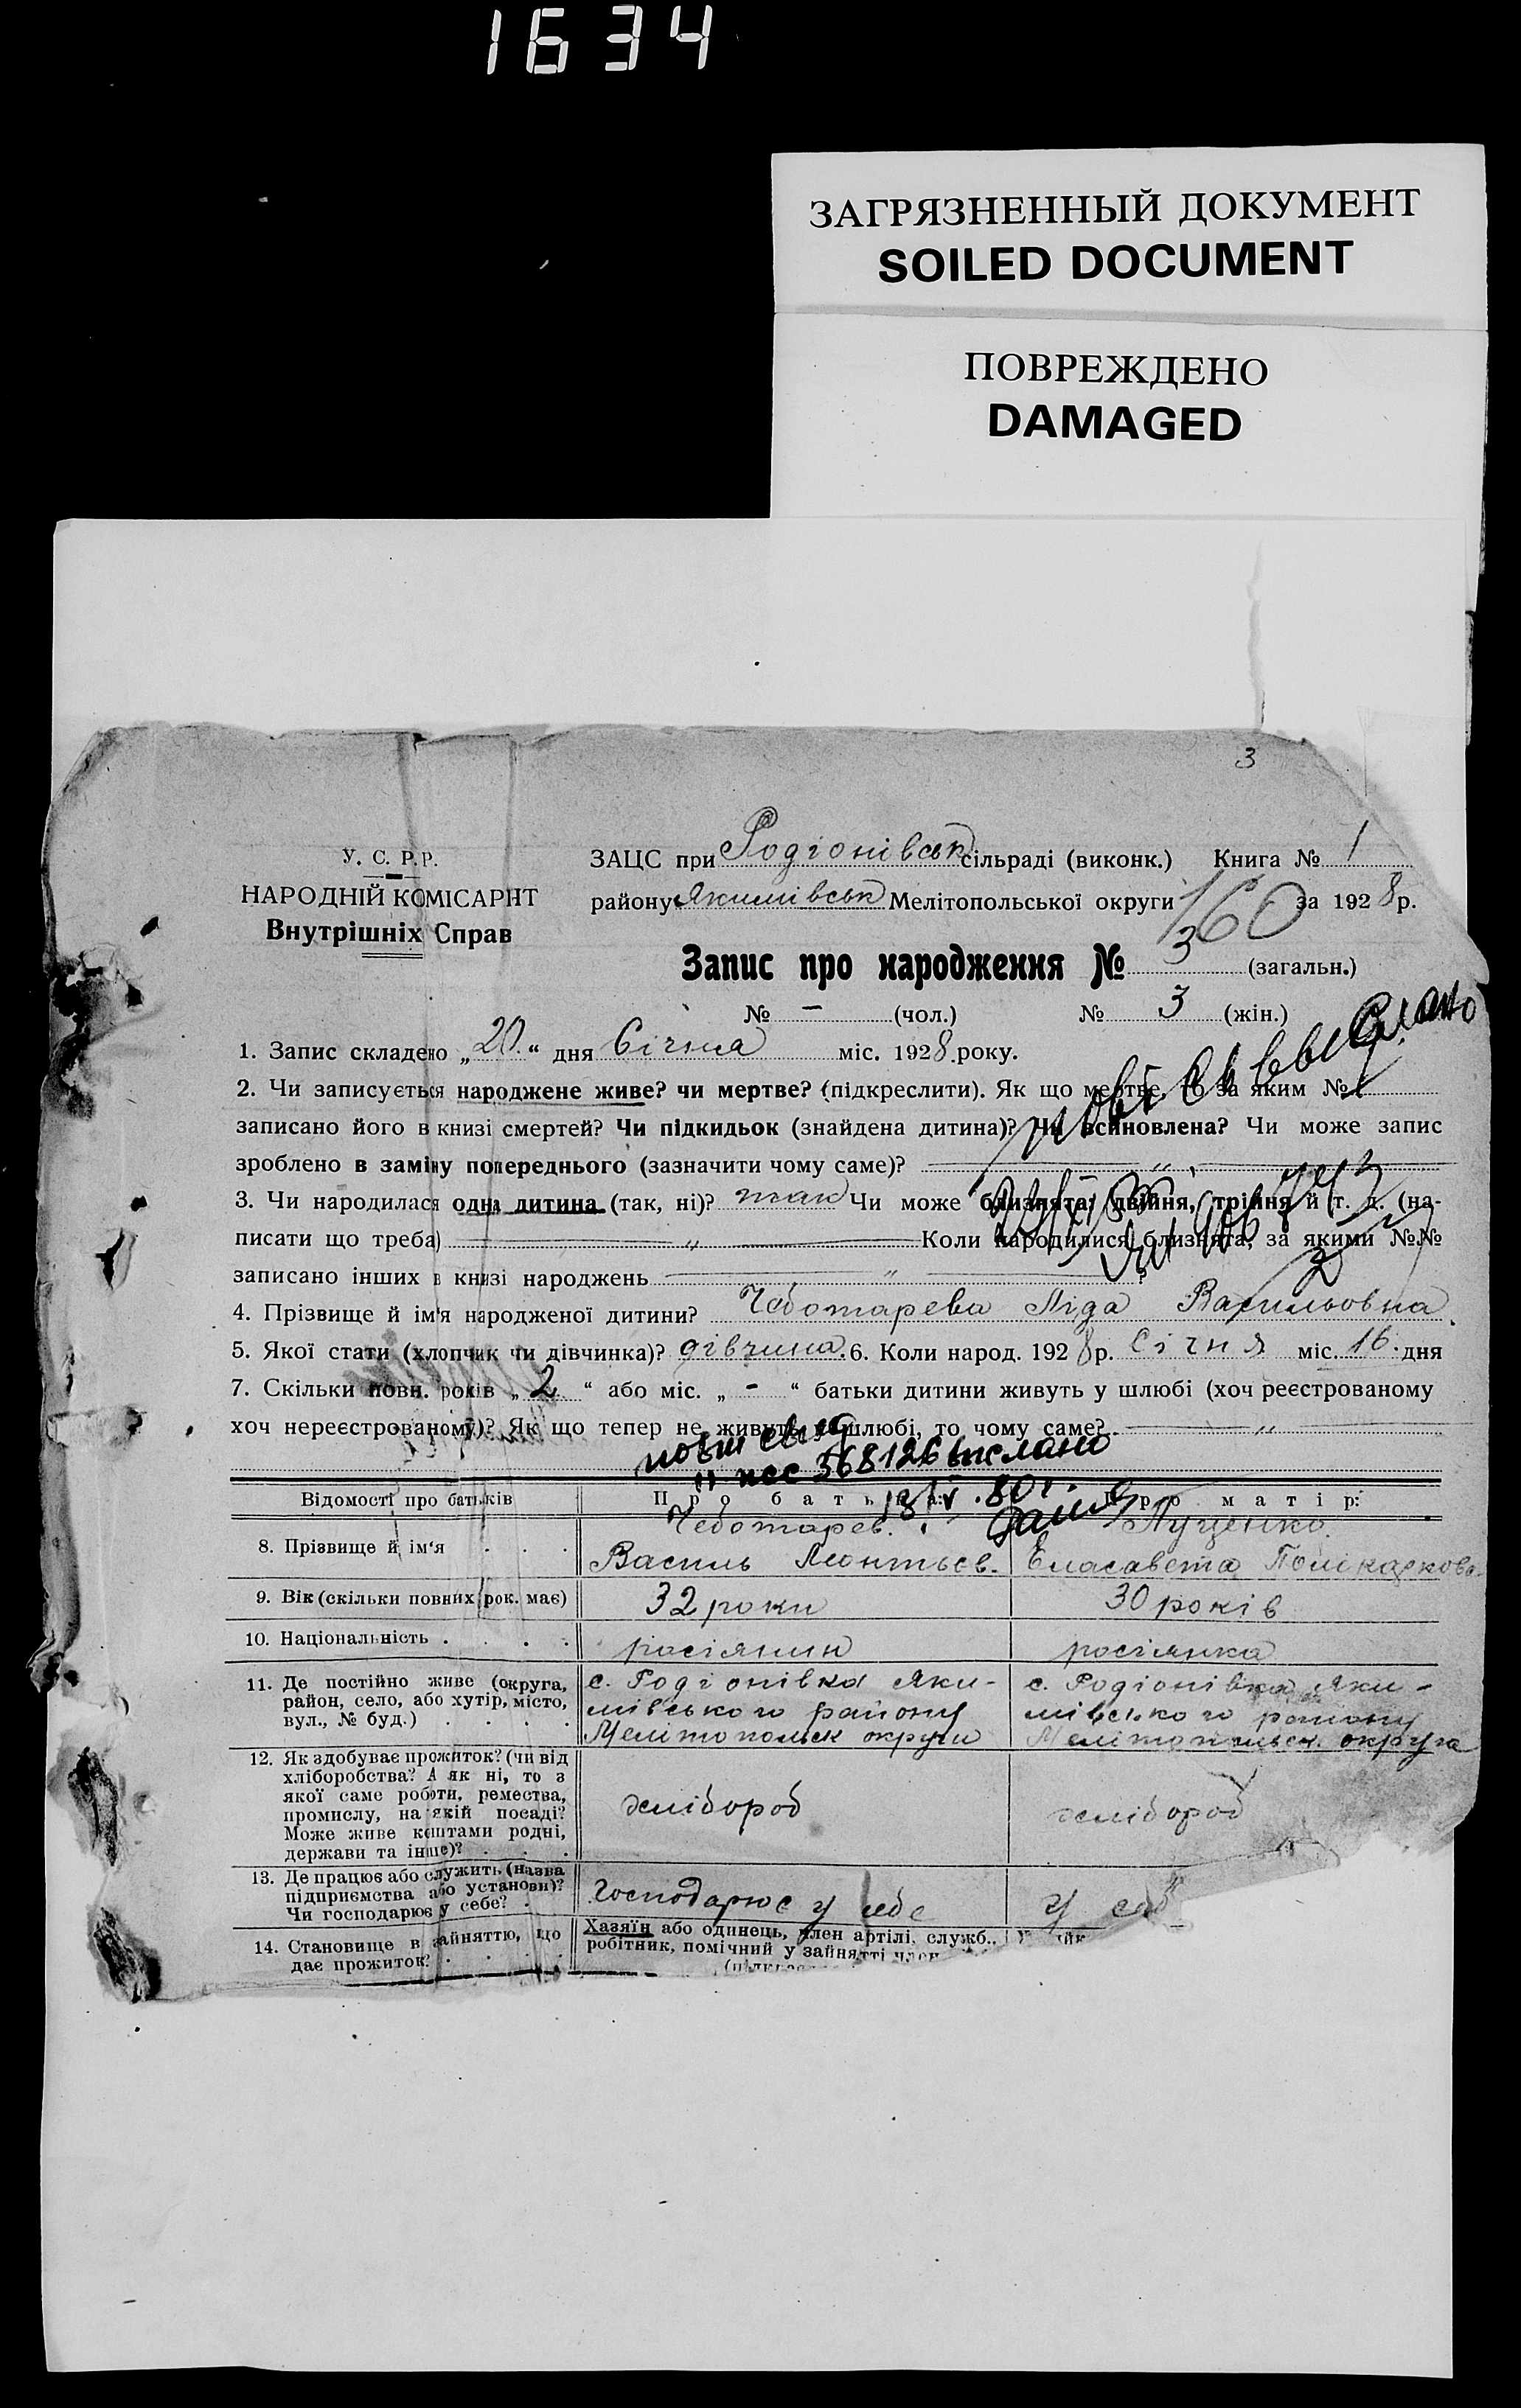 1634
ЗАГРЯЗНЕННЫЙ ДОКУМЕНТ
SOILED DOCUMENT
ПОВРЕЖДЕНО
DAMAGED
3
У. С. Р.Р.
НАРОДНІЙ КОМІСАРІЯТ
Внутрішніх Справ
ЗАЦС при Родіонівськ сільраді (виконк.) Книга № 1
району Якимівськ Мелітопольської округи за 1928 р.
160
Запис про народження № 3 (загальн.)
№ — (чол.) № 3 (жін.)
1. Запис складено „20“ дня Січня міс. 1928 року.
2. Чи записується народжене живе? чи мертве? (підкреслити). Як що мертве, то за яким №
записано його в книзі смертей? Чи підкидьок (знайдена дитина)? Чи всиновлена? Чи може запис
зроблено в заміну попереднього (зазначити чому саме)? — „ —
3. Чи народилася одна дитина (так, ні)? так Чи може близнята: двійня, трійня й т. д. (на-
писати що треба) — „ — Коли народилися близнята, за якими №№
записано інших в книзі народжень — „ —
4. Прізвище й ім'я народженої дитини? Чеботарева Ліда Васильовна
5. Якої стати (хлопчик чи дівчинка)? дівчина. 6. Коли народ. 1928 р. Січня міс. 16 дня
7. Скільки повн. років „2“ або міс. „-“ батьки дитини живуть у шлюбі (хоч реєстрованому
хоч нереєстрованому)? Як що тепер не живуть у шлюбі, то чому саме? — „ —
368126 выслано
80г.
Відомості про батьків Про батька: Про матір:
8. Прізвище й ім'я . . . Чеботарев. Василь Леонтьєв. Луценко. Єласавета Полікарпова
9. Вік (скільки повних рок. має) 32 роки 30 років
10. Національність . . . . росіянин росіянка
11. Де постійно живе (округа,
район, село, або хутір, місто,
вул., № буд.) . . . .
с. Родіонівка Яки-
мівського району
Мелітопольск округи
с. Родіонівка Яки-
мівського району
Мелітопольск. округа
12. Як здобуває прожиток? (чи від
хліборобства? А як ні, то з
якої саме роботи, ремества,
промислу, на якій посаді?
Може живе коштами родні,
держави та інше)? . . .
хлібороб хлібороб
13. Де працює або служить (назва
підприємства або установи)?
Чи господарює у себе? .
Господарює у себе у себ
14. Становище в зайняттю, що
дає прожиток? . . . .
Хазяїн або одинець, член артілі, служб.,
робітник, помічний у зайнятті член